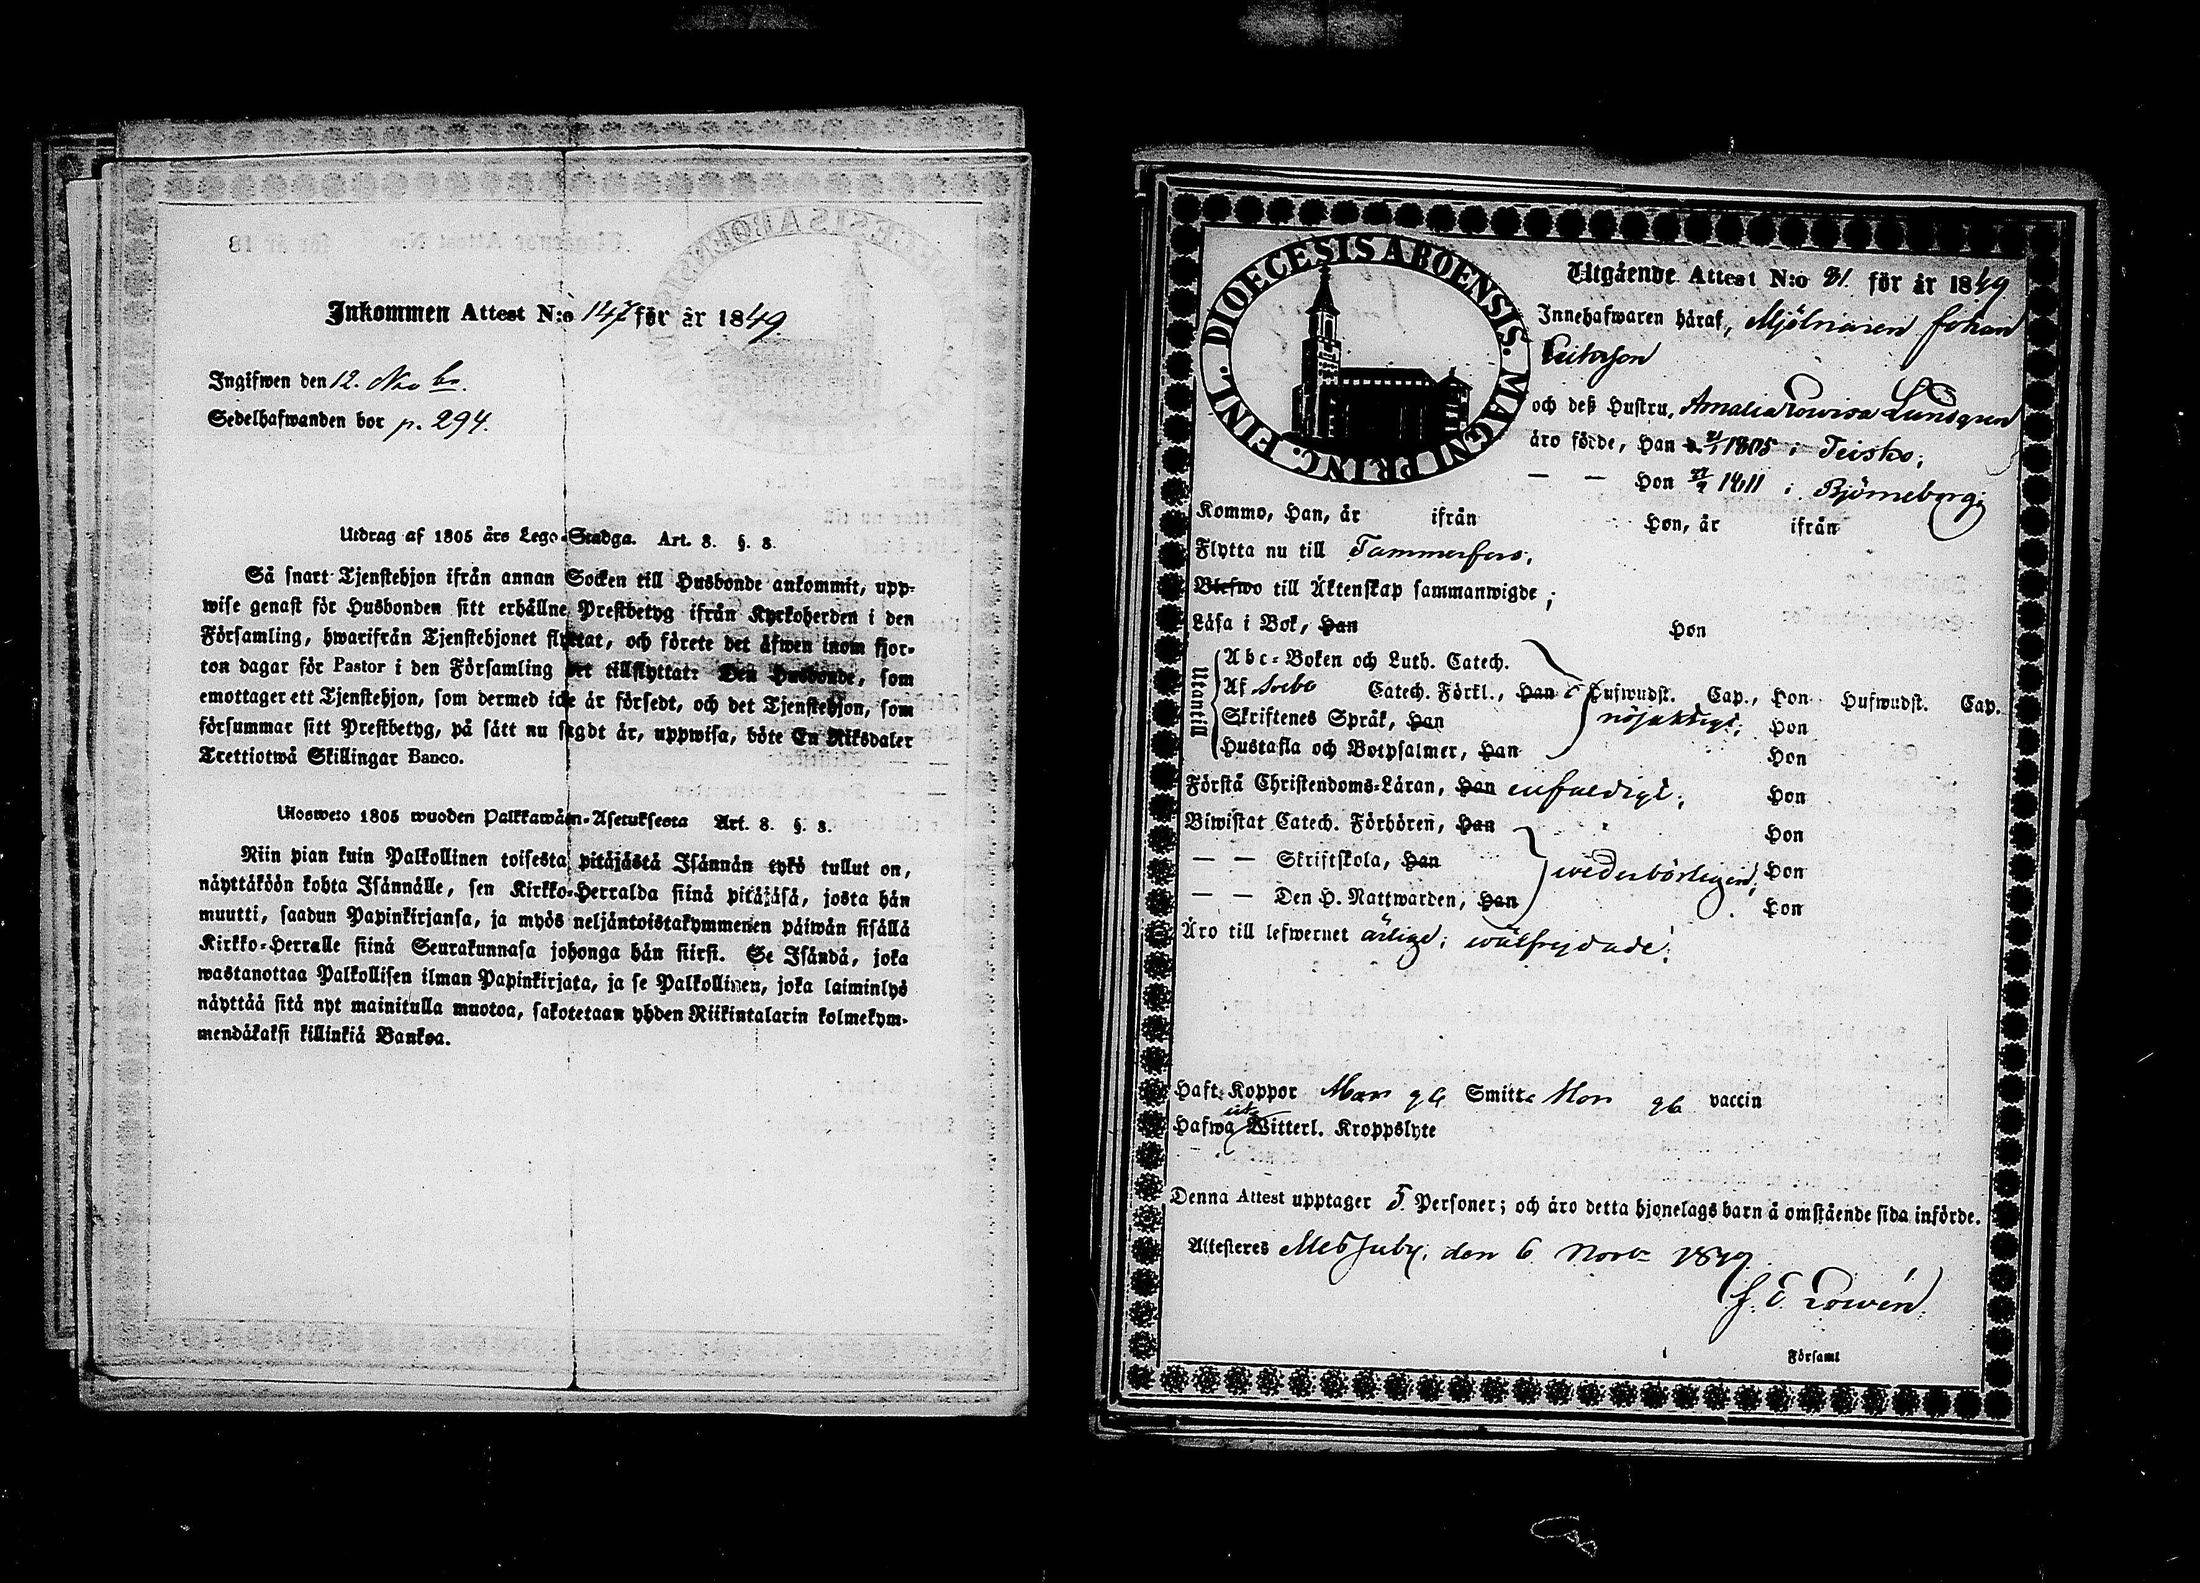 Inkommen Attest N:o 147 för år 1849.
Ingifwen den 12. Nov br.
Sedelhafwanden bor p. 294.
Utdrag af 1805 års Lego-Stadga. Art. 8. §. 8.
Så snart Tjenstehjon ifrån annan Socken till Husbonde ankommit, upp-
wise genast för Husbonden sitt erhållne Prestbetyg ifrån Kyrkoherden i den
Församling, hwarifrån Tjenstehjonet flyttat, och förete det äfwen inom fjor-
ton dagar för Pastor i den Församling det tillflyttat: Den Husbonde, som
emottager ett Tjenstehjon, som dermed icke är försedt, och det Tjenstehjon, som
försummar sitt Prestbetyg, på sätt nu sagdt är, uppwisa, böte En Riksdaler
Trettiotwå Skillingar Banco.
Ulosweto 1805 wuoden Palkkawäen-Asetuksesta Art. 8. §. 8.
Niin pian kuin Palkollinen toisesta pitäjästä Isännän tykö tullut on,
näyttäköön kohta Isännälle, sen Kirkko-Herralda siinä pitäjäsä, josta hän
muutti, saadun Papinkirjansa, ja myös neljäntoistakymmenen päiwän sisällä
Kirkko-Herralle siinä Seurakunnasa johonga hän siirsi. Se Isändä, joka
wastanottaa Palkollisen ilman Papinkirjata, ja se Palkollinen, joka laiminlyö
näyttää sitä nyt mainitulla muotoa, sakotetaan yhden Riikintalarin kolmekym-
mendäkaksi killinkiä Bankoa.
DIOECESIS ABOENSIS. MAGNI PRINC. FINL.
Utgående Attest N:o 31 för år 1849
Innehafwaren häraf, Mjölnaren Johan
och deß Hustru, Amalia Lovisa Lundgren
äro födde, Han 1805 i Teisko;
— — Hon 1811 i Björneborg;
Kommo, Han, år ifrån Hon, år ifrån
Flytta nu till Tammerfors;
Blefwo till Äktenskap sammanwigde;
Läsa i Bok, Han Hon
Utantill
Abc-Boken och Luth. Catech.
Af Svebe Catech. Förkl., Han Hufwudst. Cap., Hon Hufwudst. Cap.
Skriftenes Språk, Han nöjaktigt; Hon
Hustafla och Botpsalmer, Han Hon
Förstå Christendoms-Läran, Han enfaldigt; Hon
Biwistat Catech. Förhören, Han Hon
— — Skriftskola, Han wederbörligen; Hon
— — Den H. Nattwarden, Han Hon
Äro till lefwernet ärlige; wälfrejdade;
Haft Koppor Man gb Smitt. Hon gb vaccin
Hafwa Witterl. Kroppslyte
Denna Attest upptager 5 Personer; och äro detta hjonelags barn å omstående sida införde.
Attesteres Messuby, den 6 Novbr 1849.
Församl